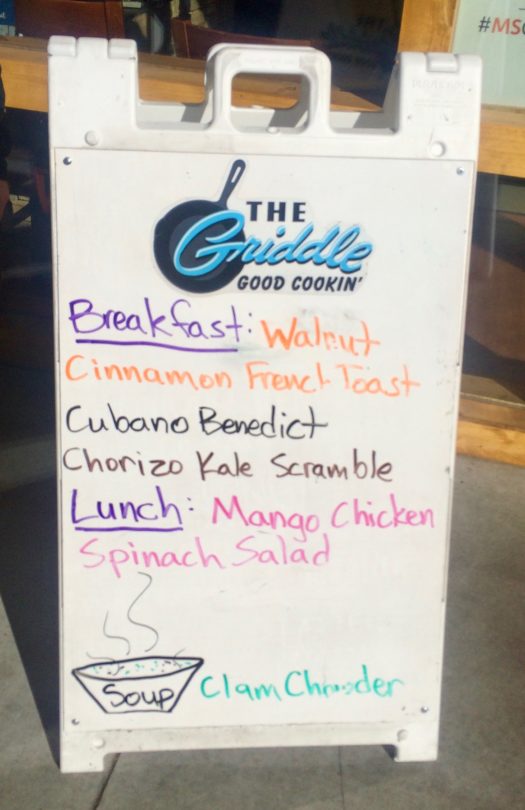 #MSG
THE
Griddle
GOOD COOKIN'
Breakfast: Walnut
Cinnamon French Toast
Cubano Benedict
Chorizo Kale Scramble
Lunch: Mango Chicken
Spinach Salad
Soup Clam Chowder